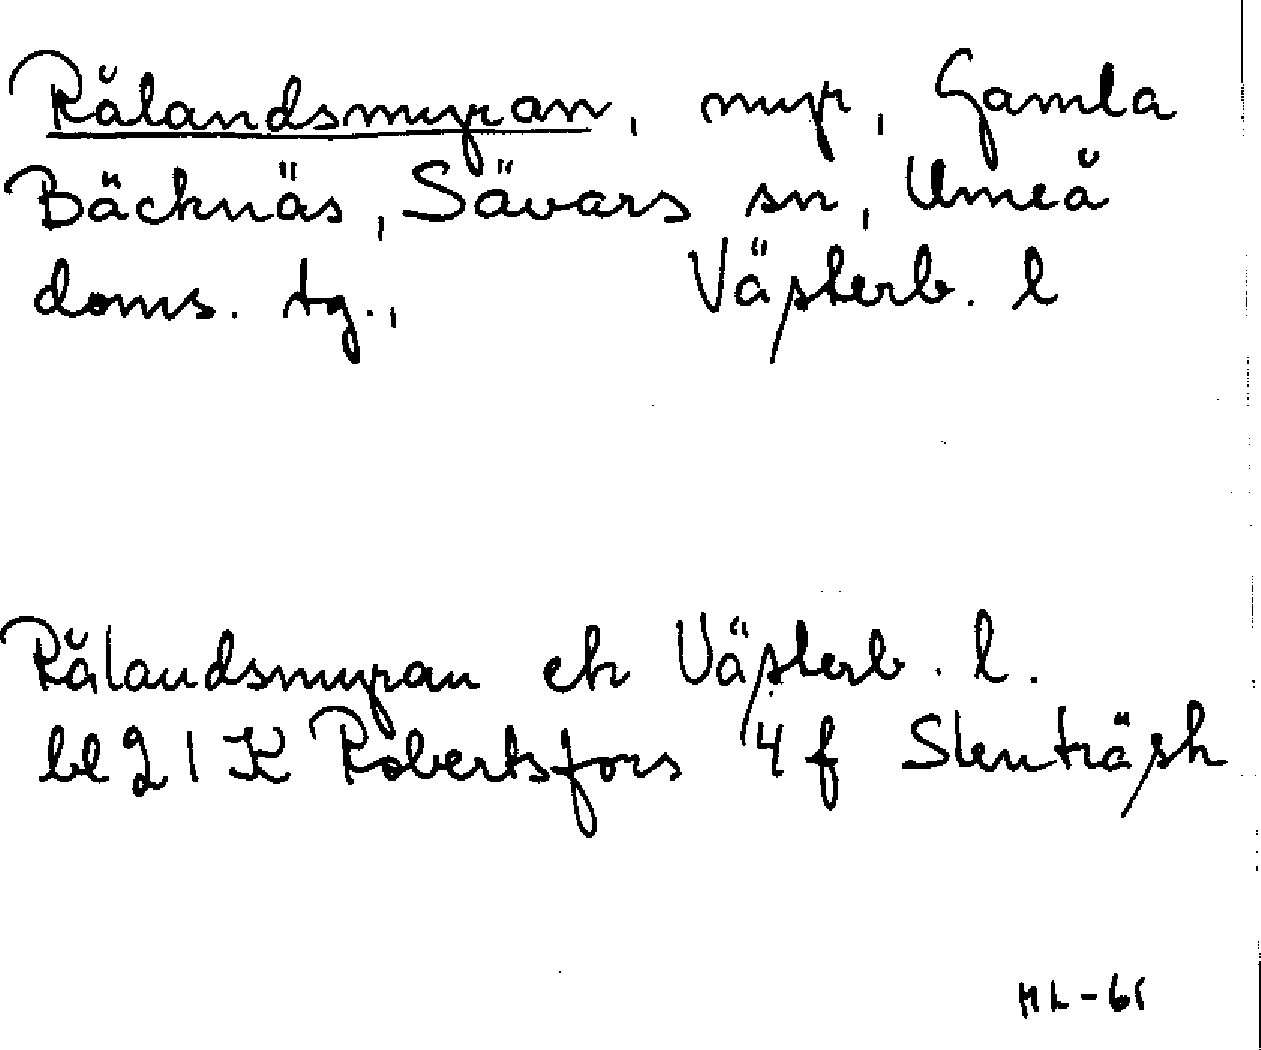 Rålandsmyran, myr, Gamla
Bäcknäs, Sävars sn, Umeå
doms. tg., Västerb. l
Rålandsmyran ek Västerb. l.
bl 21 K Robertsfors 4 f Stenträsk